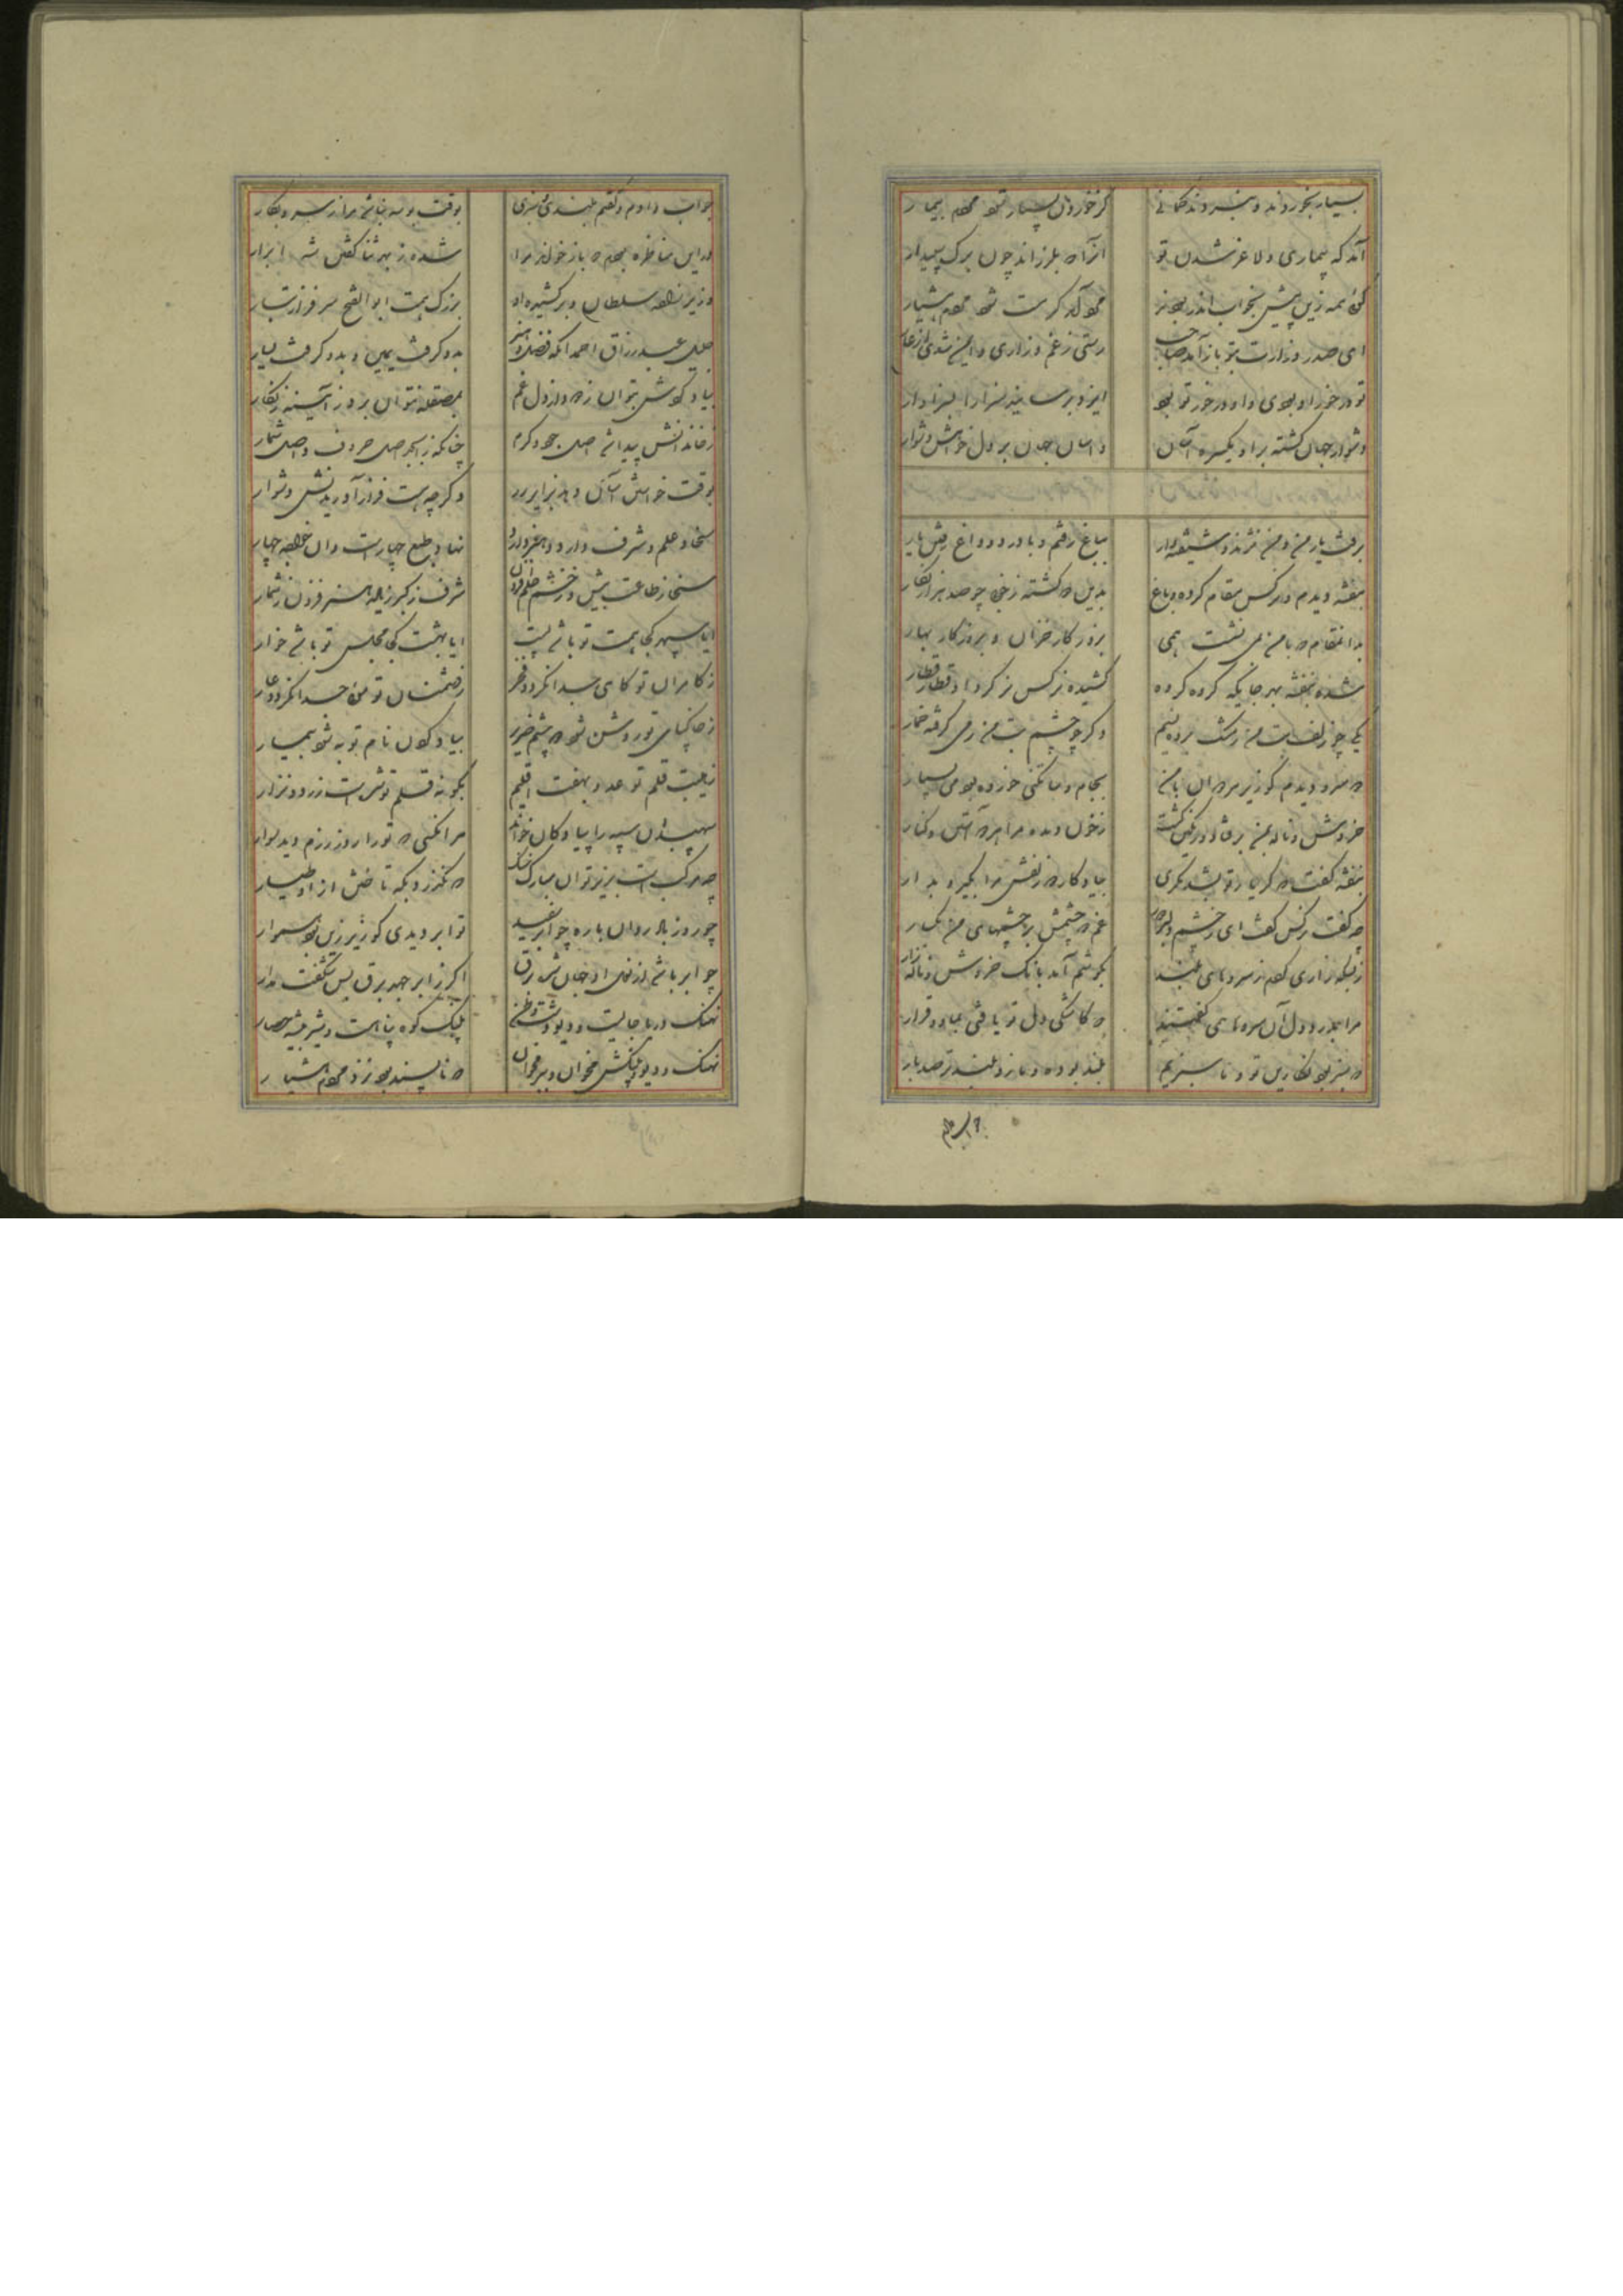 بسیار بخوردند و نبردند گمانی
کز خوردن بسیار شود مردم بیمار
آنکه که بیماری و لاغر شدن تو
از آه بلرزاند چون برک سپیدار
کوئی همه زین پیش بخواب اندر بودند
ای صدر وزارت بتو باز آمد صاحب
رستی ز غم و زاری و ایمن شدی از عار
تو در خور او بودی و او در خور تو بود
ایزد برسانید سزا را بسزاوار
دشوار جهان کشته بر او یکسره آسان
و آسان جهان بر دل خواهش دشوار
برفت یار من و من نژند و شیفته وار
بباغ رفتم و با درد و داغ رفتن یار
بنفشه دیدم و نرکس مقام کرده بباغ
بدین و کشته ز خوبی چو صد هزار نکار
بدان مقام که با من نشست همی
بروزکار خزان و بروزکار بهار
شده بنفشه بهر جایکه کروه کروه
کشیده نرکس بر کرد او قطار قطار
یکی چو زلف بت من ز مشک برده نسیم
دکر چو چشم بت من ز می کرفته خمار
خروش و ناله بمن بر فتاد و رنکین کشت
ز خون دیده مرا هر دو آستین و کنار
بنفشه کفت که کر یار تو بشد مکری
بیادکار دو زلفش مرا بکیر و بدار
چه کفت نرکس کفت ای ز چشم دلبر دور
غم دو چشمش بر چشمهای من بکمار
ز بسکه زاری کردم ز سروهای بلند
بکوشم آمد بانک خروش و ناله زار
مرا بدرد دل آن سروها همی کفتند
که کاشکی دل تو یافتی بما دو قرار
که سبز بود نکارین تو و ما سبزیم
بلند بود و ما زو بلندتر صد بار
جواب دادم
جواب دادم و کفتم بلندی و سبزی
بوقت بوسه نباشد مرا ز سرو بکار
در این مناظره بودم که باز خواند مرا
شده ز بهر ثنا کفتن شه ابرار
وزیر زاده سلطان و برکشیده او
بزرک همت ابوالفتح سرفراز تبار
جلیل عبدرزاق احمد آنکه فضل و هنر
بدو کرفت یمین و بدو کرفت یسار
بیاد کوشش بتوان زدود از دل غم
بمصقله نتوان برد ز آینه زنکار
ز خاندانش پیدا شد اصل جود و کرم
چنانکه ز ابجد اصل حروف و اصل شمار
بوقت خواستن آسان دهد بزایر بر
و کرچه هست فراز آوریدنش دشوار
سخا و علم و شرف دارد و هنر دارد
نهاد و طبع چهار است و آن خواجه چهار
شرف ز کبر زیاده هنر فزون ز شمار
ایا سپهر کجا همت تو باشد پست
ایا بهشت کجا مجلس تو باشد خوار
ز کامران تو کامی جدا نکردد فخر
ز دشمنان تو موئی جدا نکردد عار
ز خاکپای تو روشن شود دو چشم ضریر
بیاد کردن نام تو به شود بیمار
نهیب قلم تو عدو بهفت اقلیم
بکونه قلم تو شده است زرد و نزار
سپهبدان سپه را پیادکان خواند
هر آنکسی که تو را روز رزم دید سوار
چه مرکب است بزیر تو آن مبارک خنک
که نکذرد بکه تاختن از او طیار
چو روز باد روان باره چو ابر سفید
تو ابر دیدی کو زیر زین بود هموار
چو ابر باشد و از نعل او جهان شد برق
اکر ز ابر جهد برق بس شکفت مدار
نهنک دریا جای است و دیو دشت وطن
پلنک کوه پناه است و شیر بیشه حصار
نهنک و دیو و پلنکش مخوان و ببر مخوان
که ناپسند بود نزد مردم هشیار